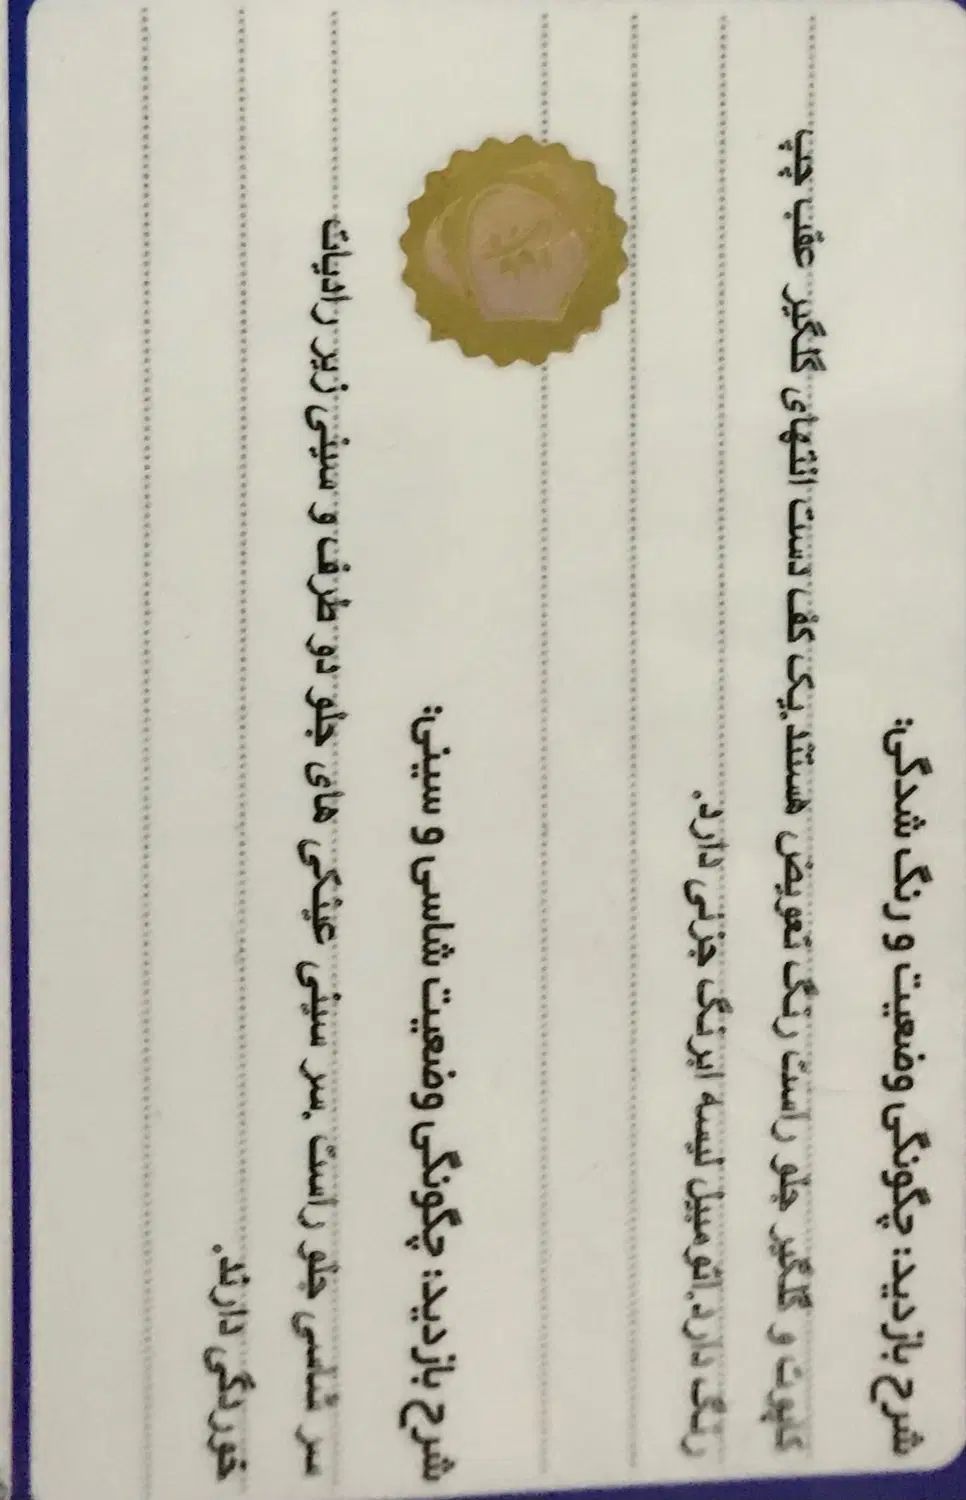 شرح بازدید: چگونگی وضعیت و رنگ شدگی:
کاپوت و گلگیر جلو راست رنگ تعویض هستند.یک کف دست انتهای گلگیر عقب چپ
رنگ دارد.اتومبیل لیسه ابرنگ جزئی دارد.
شرح بازدید: چگونگی وضعیت شاسی و سینی:
سر شاسی جلو راست .سر سینی عینکی های جلو دو طرف و سینی زیر رادیات
خوردگی دارند.